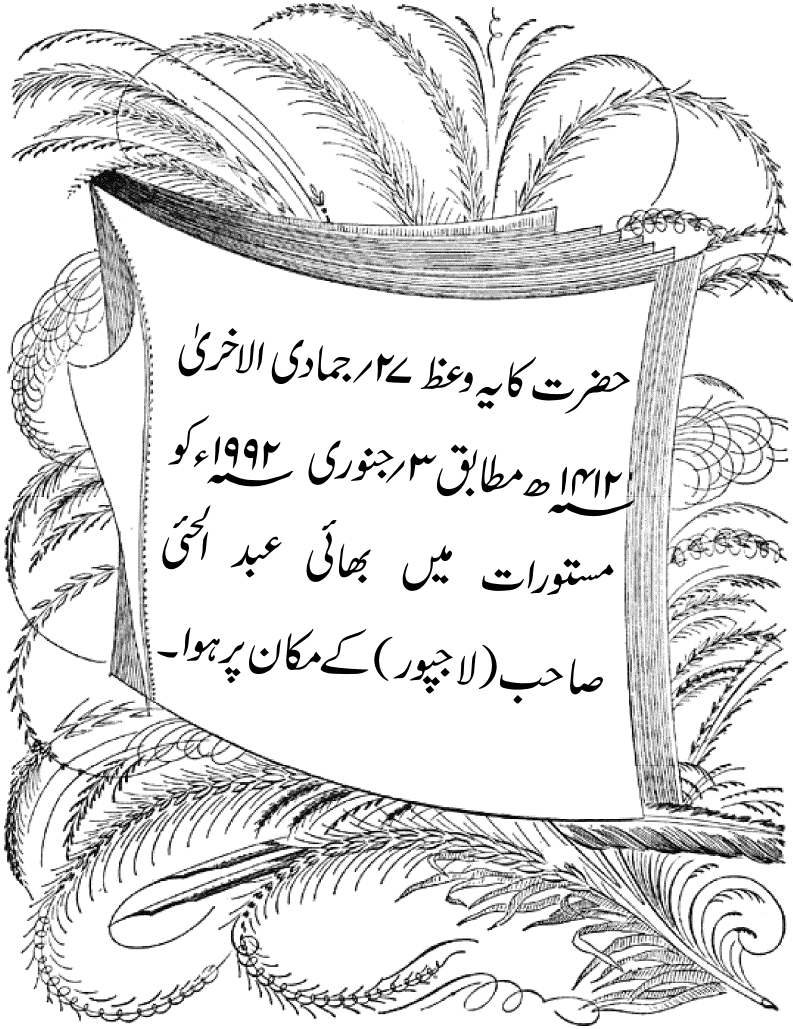 حضرت کا یہ وعظ ۲۷؍جمادی الاخریٰ
۱۴۱۲ھ مطابق ۳؍جنوری ۱۹۹۲ء کو
مستورات میں بھائی عبد الحئی
صاحب (لاجپور) کے مکان پر ہوا۔